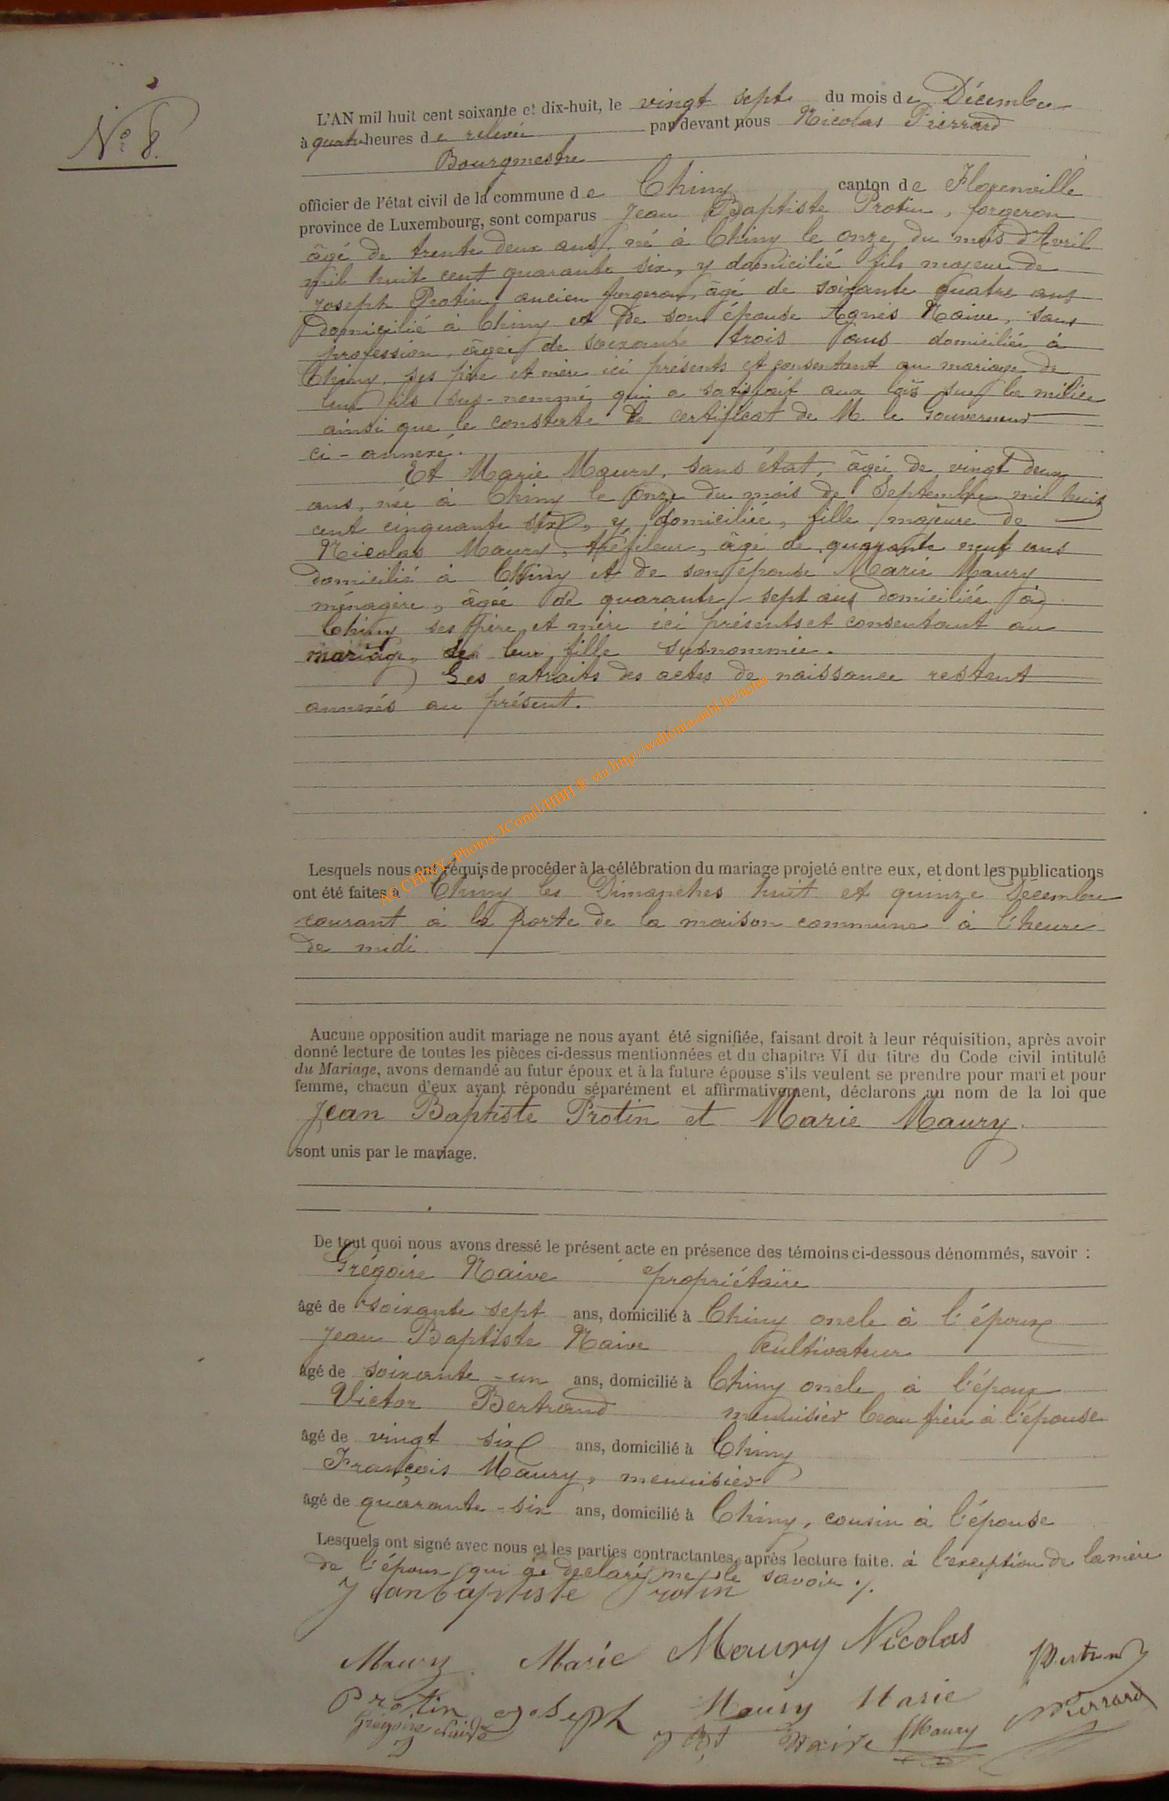 N° 8.
L'AN mil huit cent soixante et dix-huit, le vingt sept du mois de Décembre
à quatre heures de relevée par devant nous Nicolas Pierrard
Bourgmestre
officier de l'état civil de la commune de Chiny canton de Florenville
province de Luxembourg, sont comparus Jean Baptiste Protin, forgeron
âgé de trente deux ans, né à Chiny le onze du mois d'Avril
mil huit cent quarante six, y domicilié fils majeur de
Joseph Protin, ancien forgeron, âgé de soixante quatre ans
domicilié à Chiny et de son épouse Agnès Naive, sans
profession, âgée de soixante trois ans domiciliée à
Chiny. ses père et mère ici présents et consentant au mariage de
leur fils sus-nommé qui a satisfait aux lois sur la milice
ainsi que le constate le certificat de M. le Gouverneur
ci-annexé.
Et Marie Maury, sans état, âgée de vingt deux
ans, née à Chiny le onze du mois de Septembre mil huit
cent cinquante six, y domiciliée, fille majeure de
Nicolas Maury, tréfileur, âgé de quarante neuf ans
domicilié à Chiny et de son épouse Marie Maury
ménagère, âgée de quarante sept ans domiciliée à
Chiny ses père et mère ici présents et consentant au
mariage de leur fille susnommée.
Les extraits des actes de naissance restent
annexés au présent.
AC CHINY - Photos JComil HBH © via http://wallonia-asbl.be/actes
Lesquels nous ont requis de procéder à la célébration du mariage projeté entre eux, et dont les publications
ont été faites à Chiny les Dimanches huit et quinze Décembre
courant à la porte de la maison commune à l'heure
de midi
Aucune opposition audit mariage ne nous ayant été signifiée, faisant droit à leur réquisition, après avoir
donné lecture de toutes les pièces ci-dessus mentionnées et du chapitre VI du titre du Code civil intitulé
du Mariage, avons demandé au futur époux et à la future épouse s'ils veulent se prendre pour mari et pour
femme, chacun d'eux ayant répondu séparément et affirmativement, déclarons au nom de la loi que
Jean Baptiste Protin et Marie Maury.
sont unis par le mariage.
De tout quoi nous avons dressé le présent acte en présence des témoins ci-dessous dénommés, savoir :
Grégoire Naive propriétaire
âgé de soixante sept ans, domicilié à Chiny oncle à l'époux
Jean Baptiste Naive cultivateur
âgé de soixante-un ans, domicilié à Chiny oncle à l'époux
Victor Bertrand menuisier beau frère à l'épouse
âgé de vingt six ans, domicilié à Chiny
François Maury, menuisier
âgé de quarante-six ans, domicilié à Chiny, cousin à l'épouse
Lesquels ont signé avec nous et les parties contractantes, après lecture faite. à l'exception de la mère
de l'époux qui a déclaré ne le savoir ./.
Jeanbaptiste Protin
Maury Marie Maury Nicolas Bertrand
Protin Joseph Maury Marie Pierrard
Grégoire Naive J Bt Naive f Maury